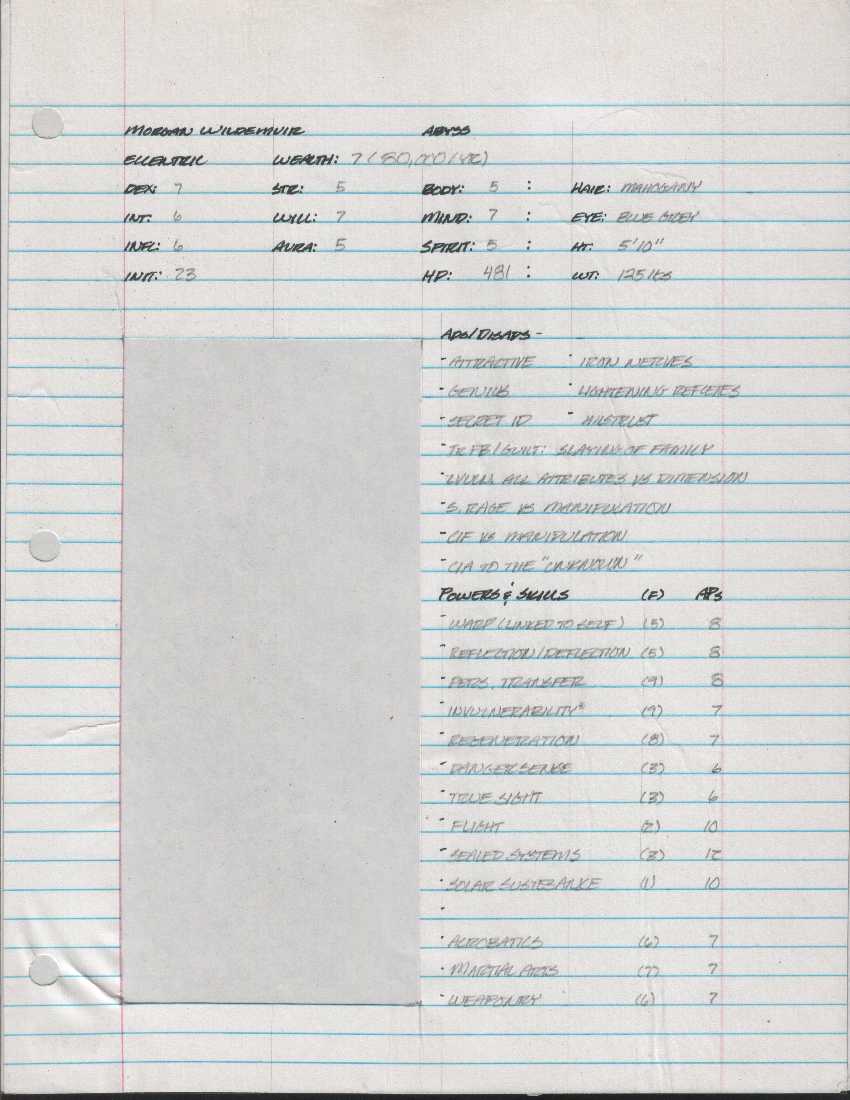 MORGAN WILDEMUIR ABYSS
ECCENTRIC WEALTH: 7 (80,000/YR)
DEX: 7 STR: 5 BODY: 5 : HAIR: MAHOGANY
INT: 6 WILL: 7 MIND: 7 : EYE: BLUE GREY
INFL: 6 AURA: 5 SPIRIT: 5 : HT: 5'10"
INIT: 23 HP: 481 : WT: 125 lbs
ADS/DISADS -
- ATTRACTIVE - IRON NERVES
- GENIUS - LIGHTENING REFLEXES
- SECRET ID - MISTRUST
- GUILT: SLAYING OF FAMILY
- ALL ATTRIBUTES VS DIMENSION
- S. RAGE VS MANIPULATION
- CIF VS MANIPULATION
- CIA TO THE "UNKNOWN"
POWERS & SKILLS (F) APs
- WARP (LINKED TO SELF) (5) 8
- REFLECTION/DEFLECTION (5) 8
- PERS. TRANSFER (9) 8
- INVULNERABILITY* (9) 7
- REGENERATION (8) 7
- DANGER SENSE (3) 6
- TRUE SIGHT (3) 6
- FLIGHT (2) 10
- SEALED SYSTEMS (3) 12
- SOLAR SUSTEBANCE (1) 10
-
- ACROBATICS (6) 7
- MARTIAL ARTS (7) 7
- WEAPONRY (6) 7